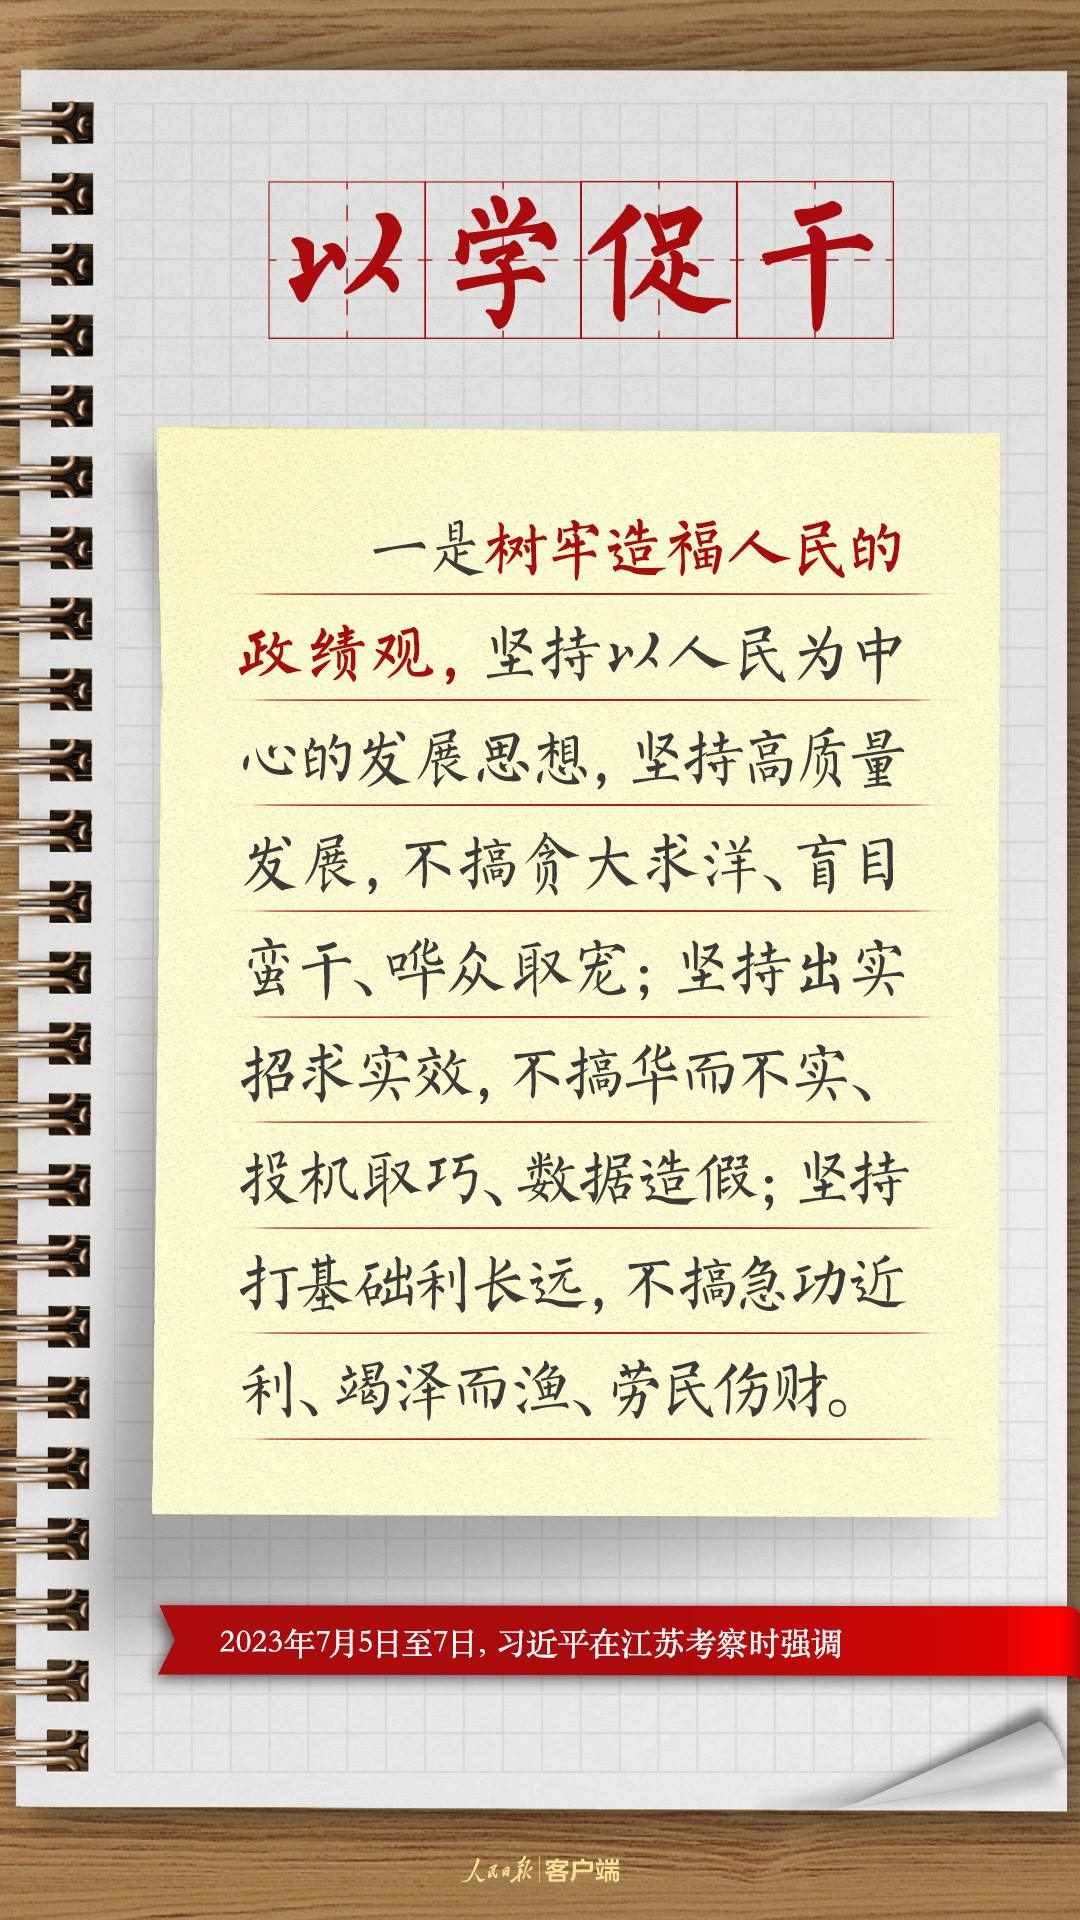 以学促干
一是树牢造福人民的
政绩观，坚持以人民为中
心的发展思想，坚持高质量
发展，不搞贪大求洋、盲目
蛮干、哗众取宠；坚持出实
招求实效，不搞华而不实、
投机取巧、数据造假；坚持
打基础利长远，不搞急功近
利、竭泽而渔、劳民伤财。
2023年7月5日至7日，习近平在江苏考察时强调
人民日报 客户端